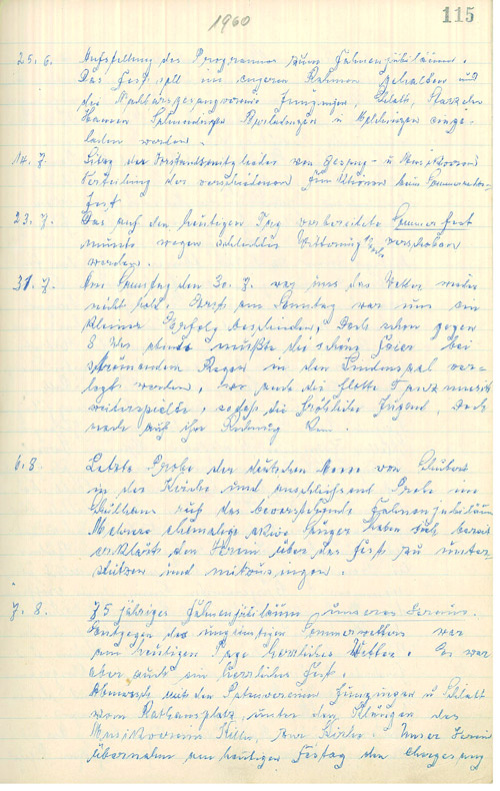 1960
115
25. 6. Aufstellung des Programms zum Fahnenjubiläum.
Das Fest soll im engeren Rahmen gehalten und
die Nachbargesangvereine Jungingen, Schlatt, Starzeln
Hausen und eingeladen
laden werden.
14. 7. Sitzg der Vorstandsmitglieder von Gesang- u Musikverein
Verteilung der verschiedenen Funktionen beim Sommernachts-
fest
23. 7. Das auf den heutigen Tag vorbereitete Sommerfest
mußte wegen schlechter Witterung verschoben
werden.
31. 7. Am Samstag den 30. 7. war uns das Wetter wieder
nicht hold. Erst am Sonntag war uns ein
kleiner Erfolg beschieden, doch schon gegen
8 Uhr abends mußte die schöne Feier bei
strömendem Regen in den Lindensaal ver-
legt werden, wo auch die flotte Tanzmusik
weiterspielte, sodaß die fröhliche Jugend, doch
noch auf ihre Rechnung kam.
6. 8. Letzte Probe der deutschen Messe von Schubert
in der Kirche und anschließend Probe im
Schulhaus auf das bevorstehende Fahnenjubiläum
Mehrere ehemalige aktive Sänger haben sich bereit
erklärt den Verein über das Fest zu unter-
stützen und mitzusingen.
7. 8. 75 jähriges Fahnenjubiläum unseres Vereins.
Entgegen des ungünstigen Sommerwetters war
am heutigen Tage herrliches Wetter. Es war
aber auch ein herrliches Fest.
Abmarsch mit den Patenvereinen Jungingen u Schlatt
vom Rathausplatz, unter den Klängen des
Musikvereins Killer, zur Kirche. Unser Verein
übernahm am heutigen Festtag den Chorgesang